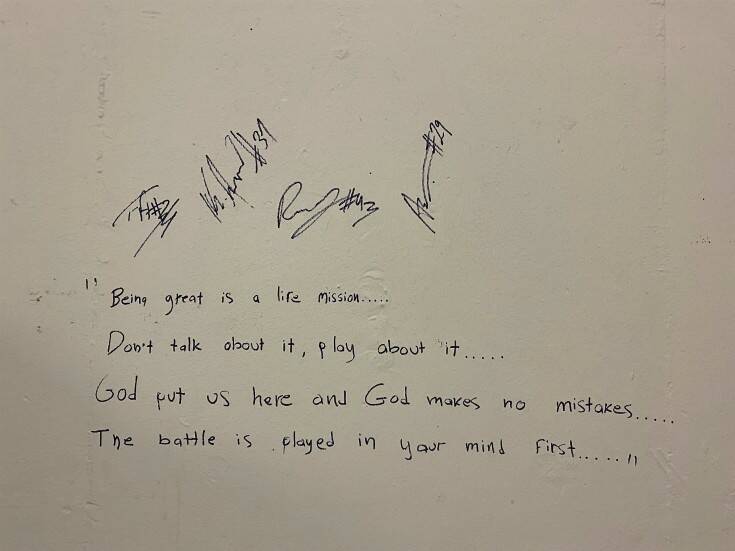 #37
#43
#29
" Being great is a life mission.....
Don't talk about it, play about it.....
God put us here and God makes no mistakes.....
The battle is played in your mind first..... "